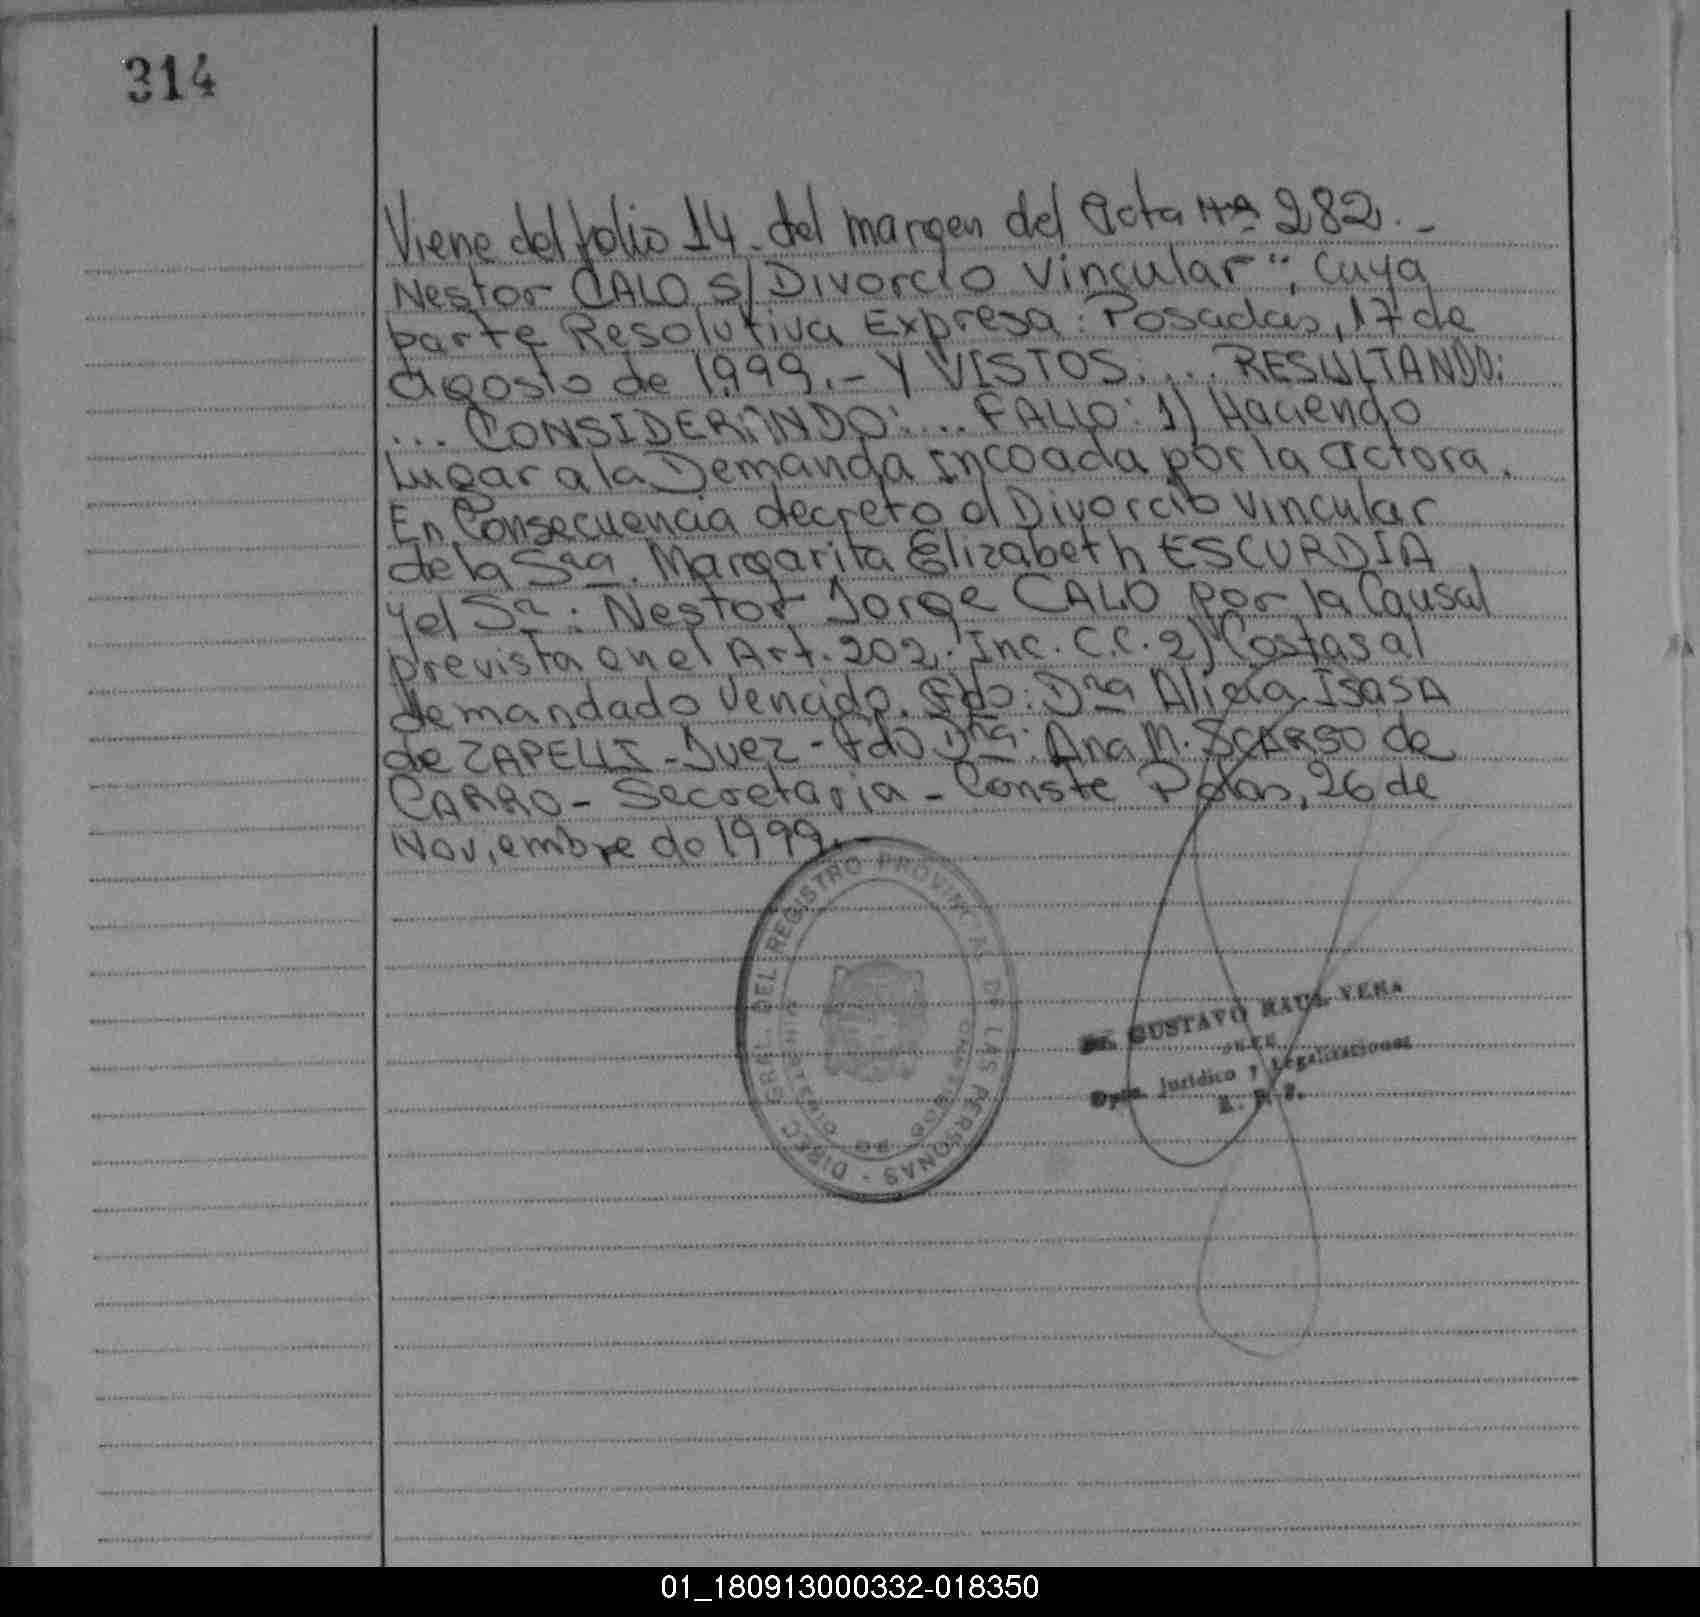 314
Viene del folio 14. del margen del acta Nº 282.-
Nestor CALO S/ Divorcio Vincular"; Cuya
parte Resolutiva Expresa: Posadas, 17 de
agosto de 1999.- Y VISTOS.... RESULTANDO:
... CONSIDERANDO:... FALLO: 1) Haciendo
Lugar a la Demanda incoada por la actora.
En Consecuencia decreto el Divorcio vincular
de la Sra. Margarita Elizabeth ESCURDIA
y el Sr: Nestor Jorge CALO por la Causal
prevista en el Art. 202. Inc. C.C. 2) Costas al
demandado Vencido. Fdo: Dra Alicia Isasa
de ZAPELLI - Juez - Fdo Dra: Ana M. SCARSO de
CARRO - Secretaria - Conste Pdas, 26 de
Noviembre de 1999.-
DIREC. GRAL. DEL REGISTRO PROVINCIAL DE LAS PERSONAS
GUSTAVO RAUL VERA
Jurídico y Legalizaciones
01_180913000332-018350